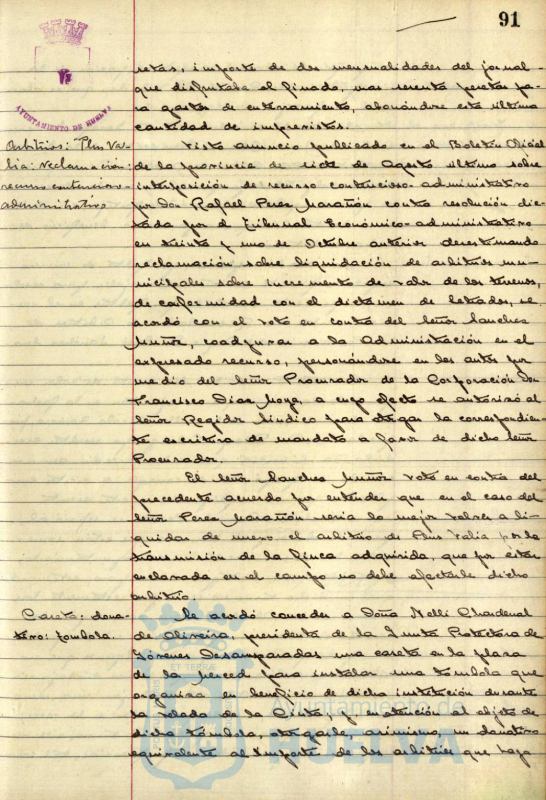 91
AYUNTAMIENTO DE HUELVA
setas, importe de dos mensualidades del jornal
que disfrutaba el finado, mas sesenta pesetas pa-
ra gastos de enterramiento, abonándose esta última
cantidad de imprevistos.
Arbitrios: Plus Va-
lia: reclamación:
recurso contencioso-
administrativo
Visto anuncio publicado en el Boletín Oficial
de la provincia de siete de Agosto último sobre
interposición de recurso contencioso-administrativo
por Don Rafael Perez Marañón contra resolución dic-
tada por el Tribunal Económico-administrativo
en treinta y uno de Octubre anterior desestimando
reclamación sobre liquidación de arbitrios mu-
nicipales sobre incremento de valor de los terrenos,
de conformidad con el dictamen de letrados, se
acordó con el voto en contra del Señor Sanchez
Muñoz, coadyuvar a la Administración en el
expresado recurso, personándose en los autos por
medio del Señor Procurador de la Corporación Don
Francisco Diaz Moya, a cuyo efecto se autorizó al
Señor Regidor Síndico para otorgar la correspondien-
te escritura de mandato a favor de dicho Señor
Procurador.
El Señor Sanchez Muñoz votó en contra del
precedente acuerdo por entender que en el caso del
Señor Perez Marañón seria lo mejor volver a li-
quidar de nuevo el arbitrio de Plus Valia por la
transmisión de la finca adquirida, que por estar
enclavada en el campo no debe afectarle dicho
arbitrio.
Caseta: dona-
tivo: tombola.
Se acordó conceder a Doña Nelli Chardenal
de Oliveira, presidenta de la Junta Protectora de
Jóvenes Desamparadas una caseta en la plaza
de la Merced para instalar una tómbola que
organiza en beneficio de dicha institución durante
la velada de la Cinta, y en atención al objeto de
dicha tómbola, otorgarle, asimismo, un donativo
equivalente al importe de los arbitrios que haya
Ayuntamiento de
HUELVA